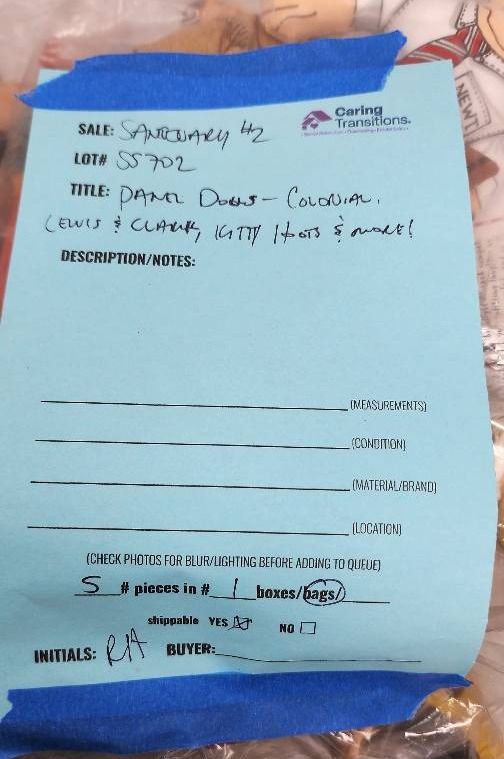 NEWT
Caring
Transitions.
SALE: SANCTUARY #2
LOT# SS702
TITLE: PANEL DOLLS - COLONIAL,
LEWIS & CLARK, KITTY HATS & MORE!
DESCRIPTION/NOTES:
(MEASUREMENTS)
(CONDITION)
(MATERIAL/BRAND)
(LOCATION)
(CHECK PHOTOS FOR BLUR/LIGHTING BEFORE ADDING TO QUEUE)
5 # pieces in # 1 boxes/bags/
shippable YES NO
INITIALS: RH BUYER: